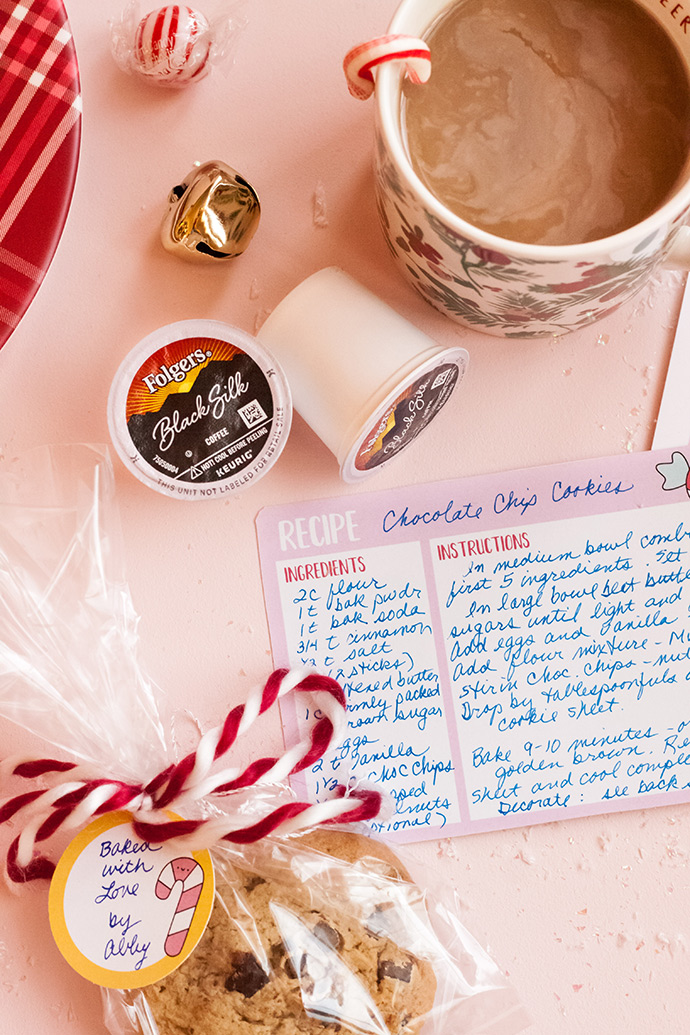 EER
Folgers®
Black Silk
COFFEE
75050004
HOT! COOL BEFORE PEELING
KEURIG
THIS UNIT NOT LABELED FOR RETAIL SALE
Folgers
Black Silk
RECIPE Chocolate Chip Cookies
INGREDIENTS
2c flour
1t bak pwdr
1t bak soda
3/4 t cinnamon
t salt
(2 sticks)
butter
packed
1c brown sugar
eggs
2t vanilla
1½ c choc chips
INSTRUCTIONS
In medium bowl comb
first 5 ingredients. Set
In large bowl beat butte
sugars until light and
add eggs and vanilla
add flour mixture - M
Stir in choc. chips - nut
Drop by tablespoonfuls
cookie sheet.
Bake 9-10 minutes - o
golden brown. Re
sheet and cool comple
Decorate: see back
Baked
with
Love
by
Abby